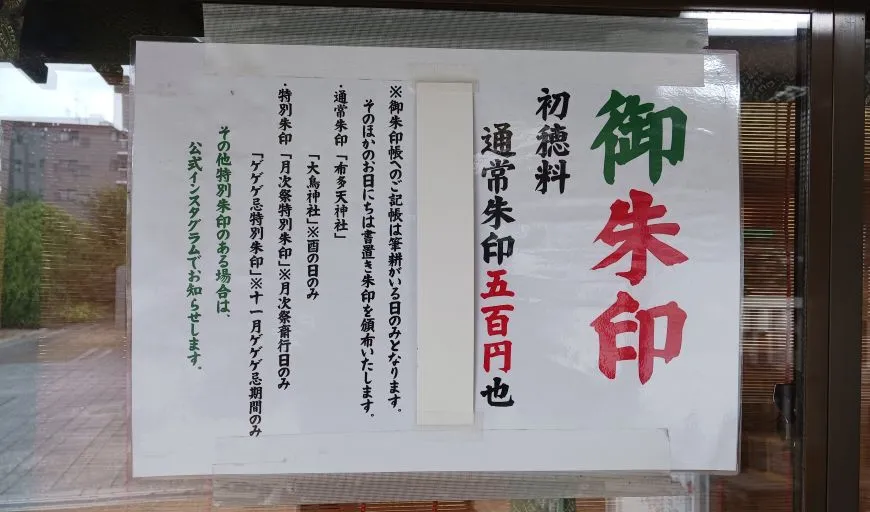 御朱印
初穂料
通常朱印五百円也
※御朱印帳へのご記帳は筆耕がいる日のみとなります。
そのほかのお日にちは書置き朱印を頒布いたします。
・通常朱印「布多天神社」
「大鳥神社」※酉の日のみ
・特別朱印「月次祭特別朱印」※月次祭齋行日のみ
「ゲゲゲ忌特別朱印」※十一月ゲゲゲ忌期間のみ
その他特別朱印のある場合は、
公式インスタグラムでお知らせします。